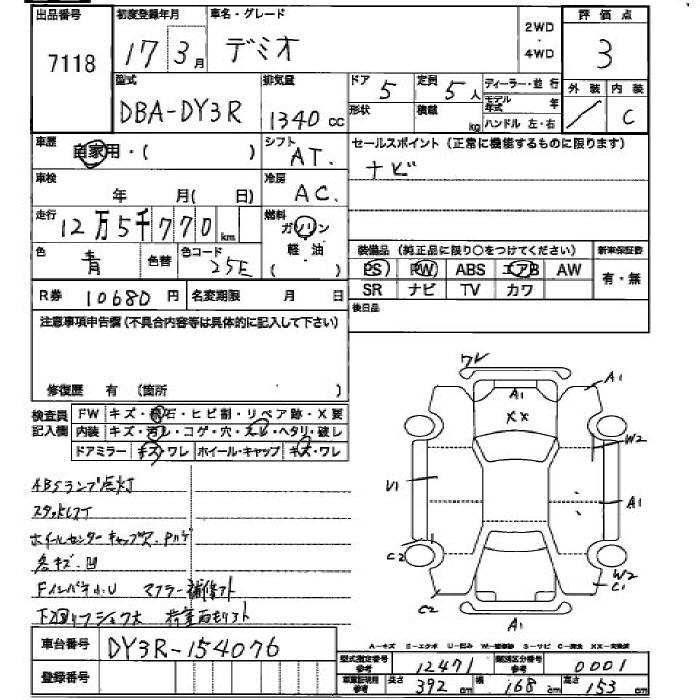 出品番号 初度登録年月 車名・グレード 2WD ・ 4WD 評価点
7118 17 3月 デミオ 3
型式 DBA-DY3R 排気量 1340 cc
ドア 5 定員 5人 ディーラー・並行 外装 内装
形状 積載 kg モデル年式 年 ／ C
ハンドル 左・右
車歴 自家用・( ) シフト AT. セールスポイント (正常に機能するものに限ります)
ナビ
車検 年 月( 日) 冷房 AC.
走行 12万5千770 km 燃料 ガソリン 軽・油 ( )
色 青 色替 色コード 25E
装備品 (純正品に限り○をつけてください) 新車保証書
PS PW ABS エアB AW 有・無
SR ナビ TV カワ
R券 10680 円 名変期限 月 日 後日品
注意事項申告欄 (不具合内容等は具体的に記入して下さい)
修復歴 有 (箇所 )
検査員記入欄 FW キズ・飛石・ヒビ割・リペア跡・X要
内装 キズ・汚レ・コゲ・穴・スレ・ヘタリ・破レ
ドアミラー キズ・ワレ ホイール・キャップ キズ・ワレ
ワレ
A1
A1
XX
W2
V1
A1
C2
W2
C1
C2
A1
ABSランプ点灯
ホイールセンターキャップ欠.
各キズ.凹
FインパネI小U マフラー補修ﾌﾄ
車台番号 DY3R-154076
登録番号
A-キズ E-エクボ U-凹み W-補修跡 S-サビ C-腐食 XX-交換済
型式指定番号 参考 12471 類別区分番号 参考 0001
車庫証明用 参考 長さ 392 cm 幅 168 cm 高さ 153 cm